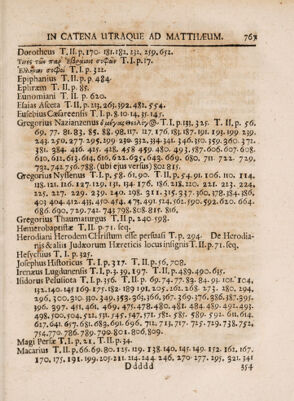 IN CATENA UTRAQUE AD MATTHÆUM. 761
Dorotheus T. II. p. 170. 181. 182. 232. 259. 652.
T. I. p. 17.
T. I. p. 312.
Epiphanius T. II. p. p. 484.
Ephræm T. II. p. 85.
Eunomiani T. II. p. 620.
Esaias Asceta T. II. p. 213. 263. 392. 481. 554.
Eusebius Cæsareensis T. I. p. 8. 10. 14. 35. 145.
Gregorius Nazianzenus T. I. p. 131. 325. T. II. p. 56.
69. 77. 81. 83. 85. 88. 98. 117. 127. 176. 181. 187. 191. 193. 199. 239.
243. 250. 277. 295. 199. 332. 334. 341. 346. 350. 359. 360. 371.
381. 384. 416. 418. 425. 458 459 480. 493. 587. 606. 607. 608.
610. 612. 613. 614. 616. 622. 635. 643. 669. 680. 711. 722. 729.
732. 742. 756. 788. (ubi ejus versus) 801. 815.
Gregorius Nyssenus T. I. p. 58. 61. 90. T. II. p. 54. 91. 106. 110. 114.
118. 121. 126. 127. 129. 131. 134. 176. 186. 218. 220. 221. 213. 224.
225. 227. 229. 239. 240. 298. 311. 315. 337. 360. 378. 384. 386.
403. 404. 412. 433. 450. 454. 475. 491. 524. 561. 590. 592. 620. 664.
686. 690. 729. 741. 743. 798. 808. 815. 816.
Gregorius Thaumaturgus T. II. p. 240. 598.
Hemerobaptistæ T. II. p. 71. seq.
Herodiani Herodem Christum esse persuasi T. p. 294. De Herodia-
nis & aliis Judæorum Hæreticis locus insignis T. II. p. 71. seq.
Hesychius T. I. p. 325.
Josephus Historicus T. I. p. 317. T. II. p. 56, 708.
Irenæus Lugdunensis T. I. p. 3. 39. 197. T. II. p. 489. 490. 615.
Isidorus Pelusiota T. I. p. 356. T. II. p. 69. 74. 77. 83. 84. 93. 101. 104.
132. 140. 141. 169. 175. 182. 189. 191. 225. 262. 268. 273. 280. 294.
296. 300. 310. 330. 349. 353. 363. 366. 367. 369. 376. 386. 387. 395.
396. 397. 451. 461. 469. 475. 478. 480. 481. 484. 489. 491. 493.
498. 500. 504. 521. 531. 545. 547. 571. 581. 585. 589. 592. 611. 614.
617. 641. 657. 681. 683. 691. 696. 711. 713. 717. 725. 729. 738. 752.
754. 770. 786. 789. 790. 801. 806. 809.
Magi Persæ T. I. p. 21. T. II. p. 34.
Macarius T. II. p. 66. 69. 80. 125. 129. 138. 140. 145. 149. 152. 161. 167.
170. 175. 191. 199. 205. 211. 214. 244. 246. 270. 277. 295. 321. 341
Ddddd 354